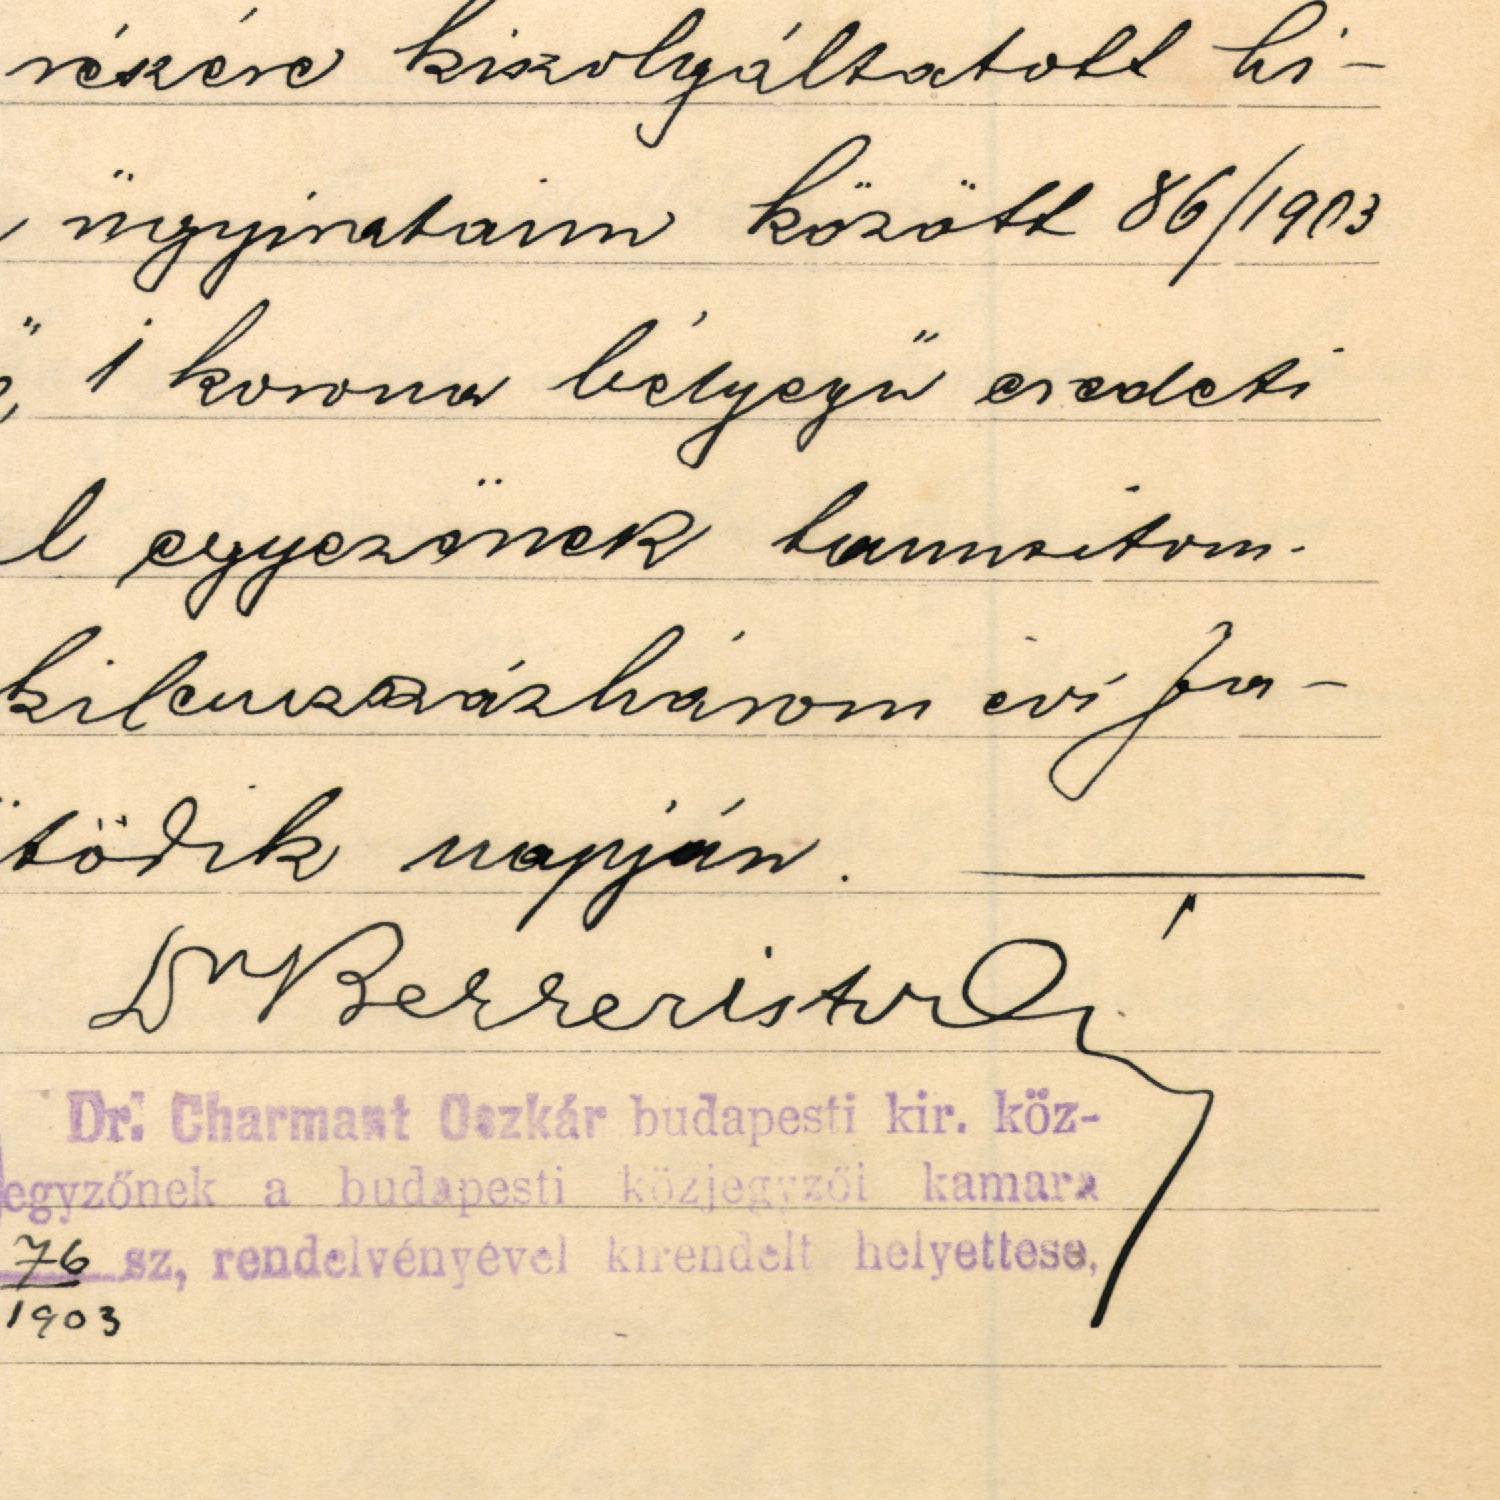 részére kiszolgáltatott hi-
ügyirataim között 86/1903
1 korona bélyegü eredeti
l egyezőnek tanusitom.
kilenczszázhárom évi ja-
tödik napján.
Dr
Dr. Charmant Oszkár budapesti kir. köz-
egyzőnek a budapesti közjegyzői kamara
76 sz, rendelvényével kirendelt helyettese,
1903